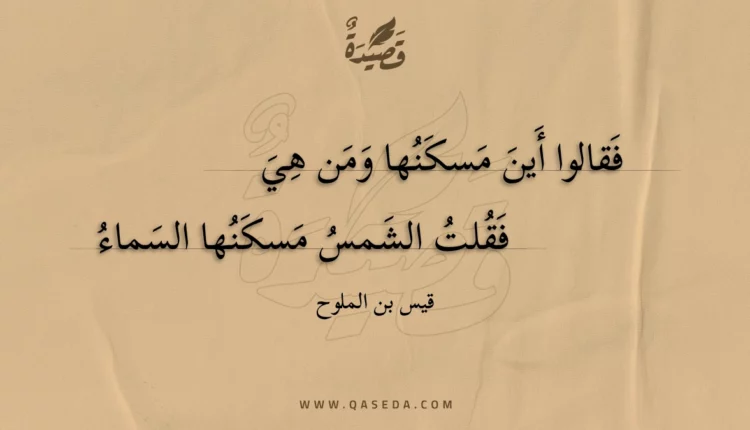 قَصِيدَةٌ
فَقالوا أَينَ مَسكَنُها وَمَن هِيَ
فَقُلتُ الشَمسُ مَسكَنُها السَماءُ
قيس بن الملوح
WWW.QASEDA.COM